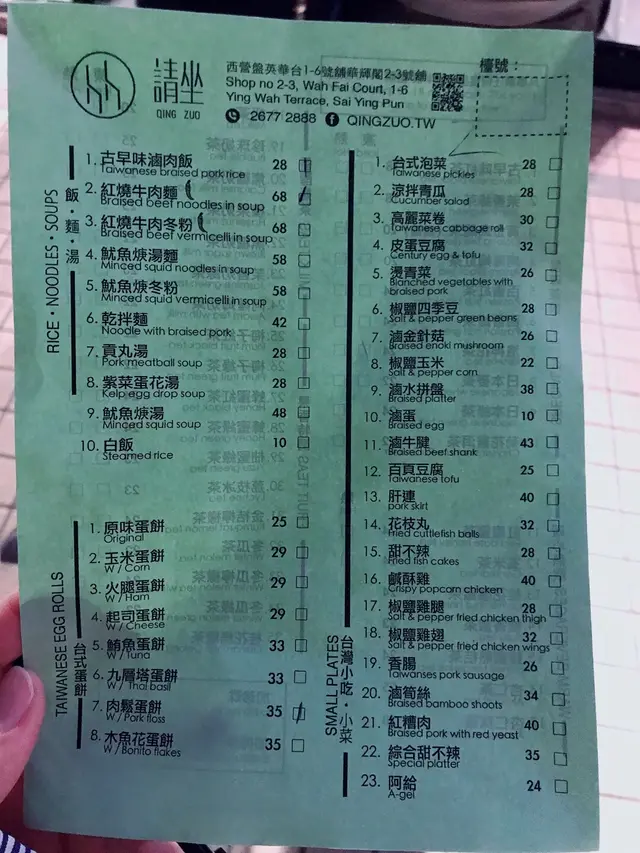 請坐
QING ZUO
西營盤英華台1-6號舖華輝閣2-3號舖
Shop no 2-3, Wah Fai Court, 1-6
Ying Wah Terrace, Sai Ying Pun
2677 2888 QINGZUO.TW
檯號：
飯・麵・湯
RICE・NOODLES・SOUPS
1. 古早味滷肉飯 28
Taiwanese braised pork rice
2. 紅燒牛肉麵 68
Braised beef noodles in soup
3. 紅燒牛肉冬粉 68
Braised beef vermicelli in soup
4. 魷魚焿湯麵 58
Minced squid noodles in soup
5. 魷魚焿冬粉 58
Minced squid vermicelli in soup
6. 乾拌麵 42
Noodle with braised pork
7. 貢丸湯 28
Pork meatball soup
8. 紫菜蛋花湯 28
Kelp egg drop soup
9. 魷魚焿湯 48
Minced squid soup
10. 白飯 10
Steamed rice
TAIWANESE EGG ROLLS
台式蛋餅
1. 原味蛋餅 25
Original
2. 玉米蛋餅 29
W / Corn
3. 火腿蛋餅 29
W / Ham
4. 起司蛋餅 29
W / Cheese
5. 鮪魚蛋餅 33
W / Tuna
6. 九層塔蛋餅 33
W / Thai basil
7. 肉鬆蛋餅 35
W / Pork floss
8. 木魚花蛋餅 35
W / Bonito flakes
SMALL PLATES
台灣小吃・小菜
1. 台式泡菜 28
Taiwanese pickles
2. 涼拌青瓜 28
Cucumber salad
3. 高麗菜卷 30
Taiwanese cabbage roll
4. 皮蛋豆腐 32
Century egg & tofu
5. 燙青菜 26
Blanched vegetables with
braised pork
6. 椒鹽四季豆 28
Salt & pepper green beans
7. 滷金針菇 26
Braised enoki mushroom
8. 椒鹽玉米 22
Salt & pepper corn
9. 滷水拼盤 38
Braised platter
10. 滷蛋 10
Braised egg
11. 滷牛腱 43
Braised beef shank
12. 百頁豆腐 25
Taiwanese tofu
13. 肝連 40
pork skirt
14. 花枝丸 32
Fried cuttlefish balls
15. 甜不辣 28
Fried fish cakes
16. 鹹酥雞 40
Crispy popcorn chicken
17. 椒鹽雞腿 28
Salt & pepper fried chicken thigh
18. 椒鹽雞翅 32
Salt & pepper fried chicken wings
19. 香腸 26
Taiwanses pork sausage
20. 滷筍絲 34
Braised bamboo shoots
21. 紅糟肉 40
Braised pork with red yeast
22. 綜合甜不辣 35
Special platter
23. 阿給 24
A-gei